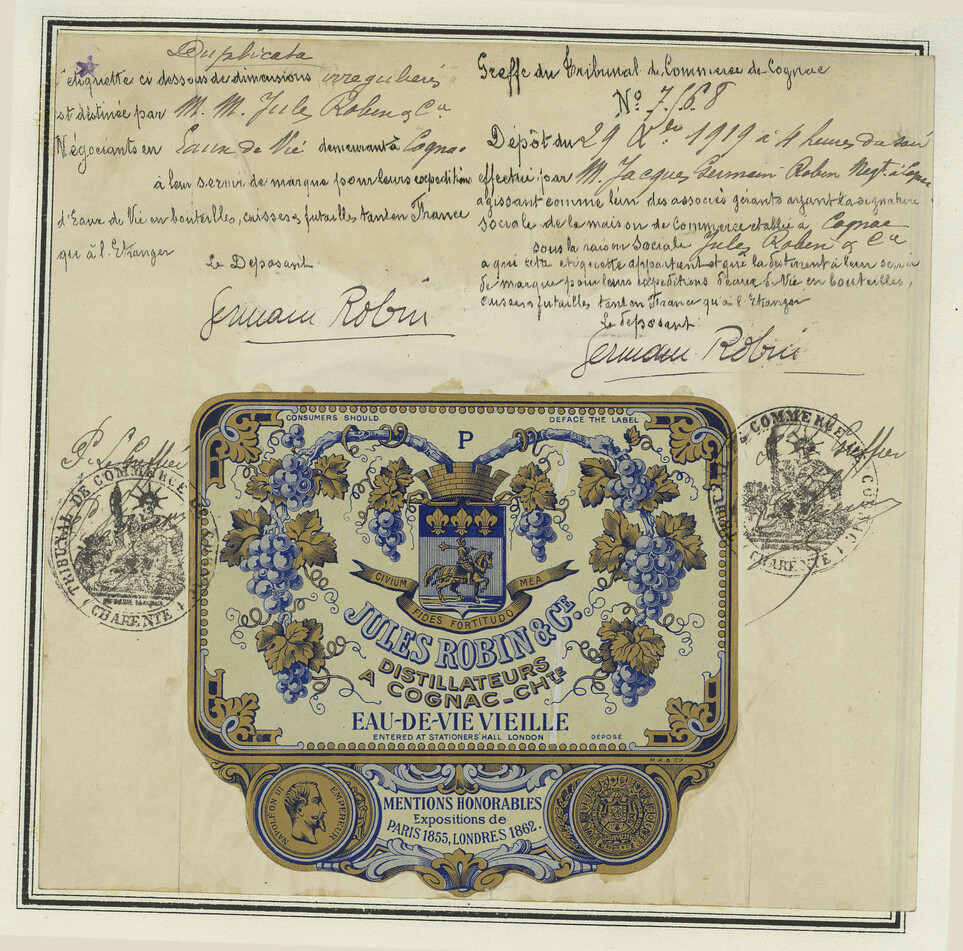 Duplicata
l'etiquette ci dessous de dimensions irregulieres
est destinée par M. M. Jules Robin & Cie
Négociants en Eaux de Vie demeurant à Cognac
à leur servir de marque pour leurs expeditions
d'Eaux de Vie en bouteilles, caisses & futailles tant en France
qu'à l'Etranger
Le Deposant
Germain Robin
Greffe du Tribunal de Commerce de Cognac
No 7168
Dépôt du 29 Xbre 1919 à 4 heures du soir
effectué par M. Jacques Germain Robin Negt à Cognac
agissant comme l'un des associés gérants ayant la signature
sociale de la maison de Commerce établie à Cognac
sous la raison sociale Jules Robin & Cie
a qui cette etiquette appartient et qui la destinent à leur servir
de marque pour leurs expeditions d'eaux de Vie en bouteilles,
caisses & futailles tant en France qu'à l'Etranger
Le deposant
Germain Robin
P. Le Greffier
Greffier
TRIBUNAL DE COMMERCE
CHARENTE
COMMERCE
CHARENTE
CONSUMERS SHOULD DEFACE THE LABEL
P
CIVIUM MEA
FIDES FORTITUDO
JULES ROBIN & CIE.
DISTILLATEURS
A COGNAC-CHTE
EAU-DE-VIE VIEILLE
ENTERED AT STATIONERS' HALL LONDON DÉPOSÉ
M.A.& CO
NAPOLEON III EMPEREUR
MENTIONS HONORABLES
Expositions de
PARIS 1855, LONDRES 1862.